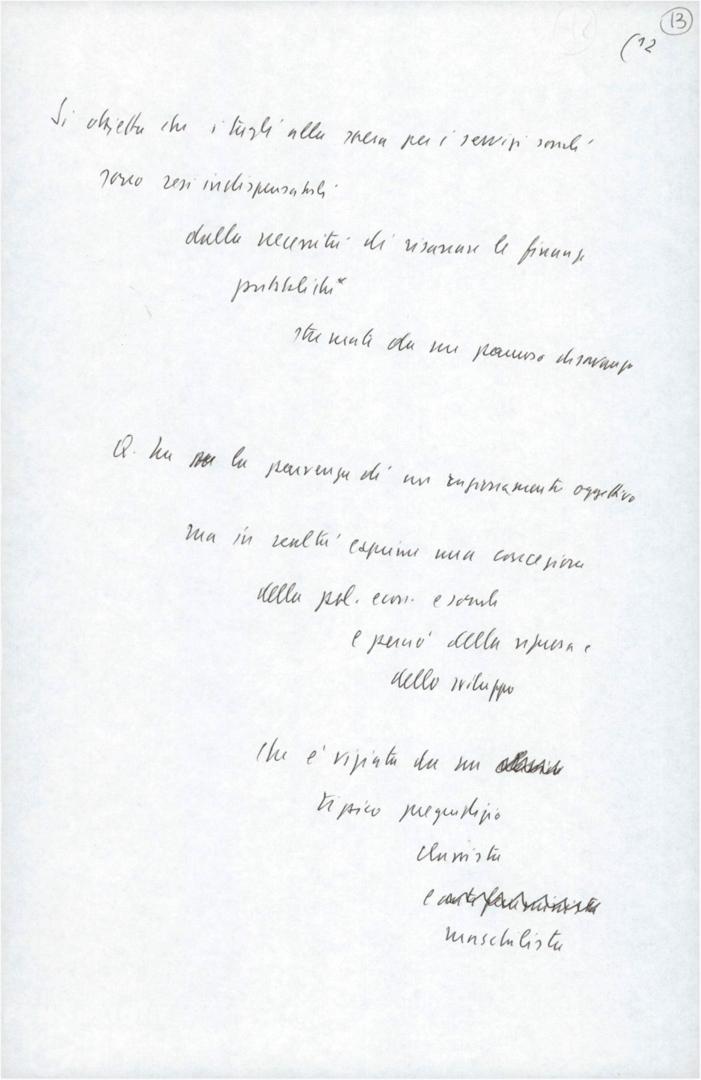 13
(12
Si obietta che i tagli alla spesa per i servizi sociali
sono resi indispensabili
dalla necessità di risanare le finanze
pubbliche
stremate da un pauroso disavanzo
Q. ha la parvenza di un ragionamento oggettivo
ma in realtà esprime una concezione
della pol. econ. e sociale
e perciò della ripresa e
dello sviluppo
che è viziata da un
tipico pregiudizio
classista
e antifemminista
maschilista